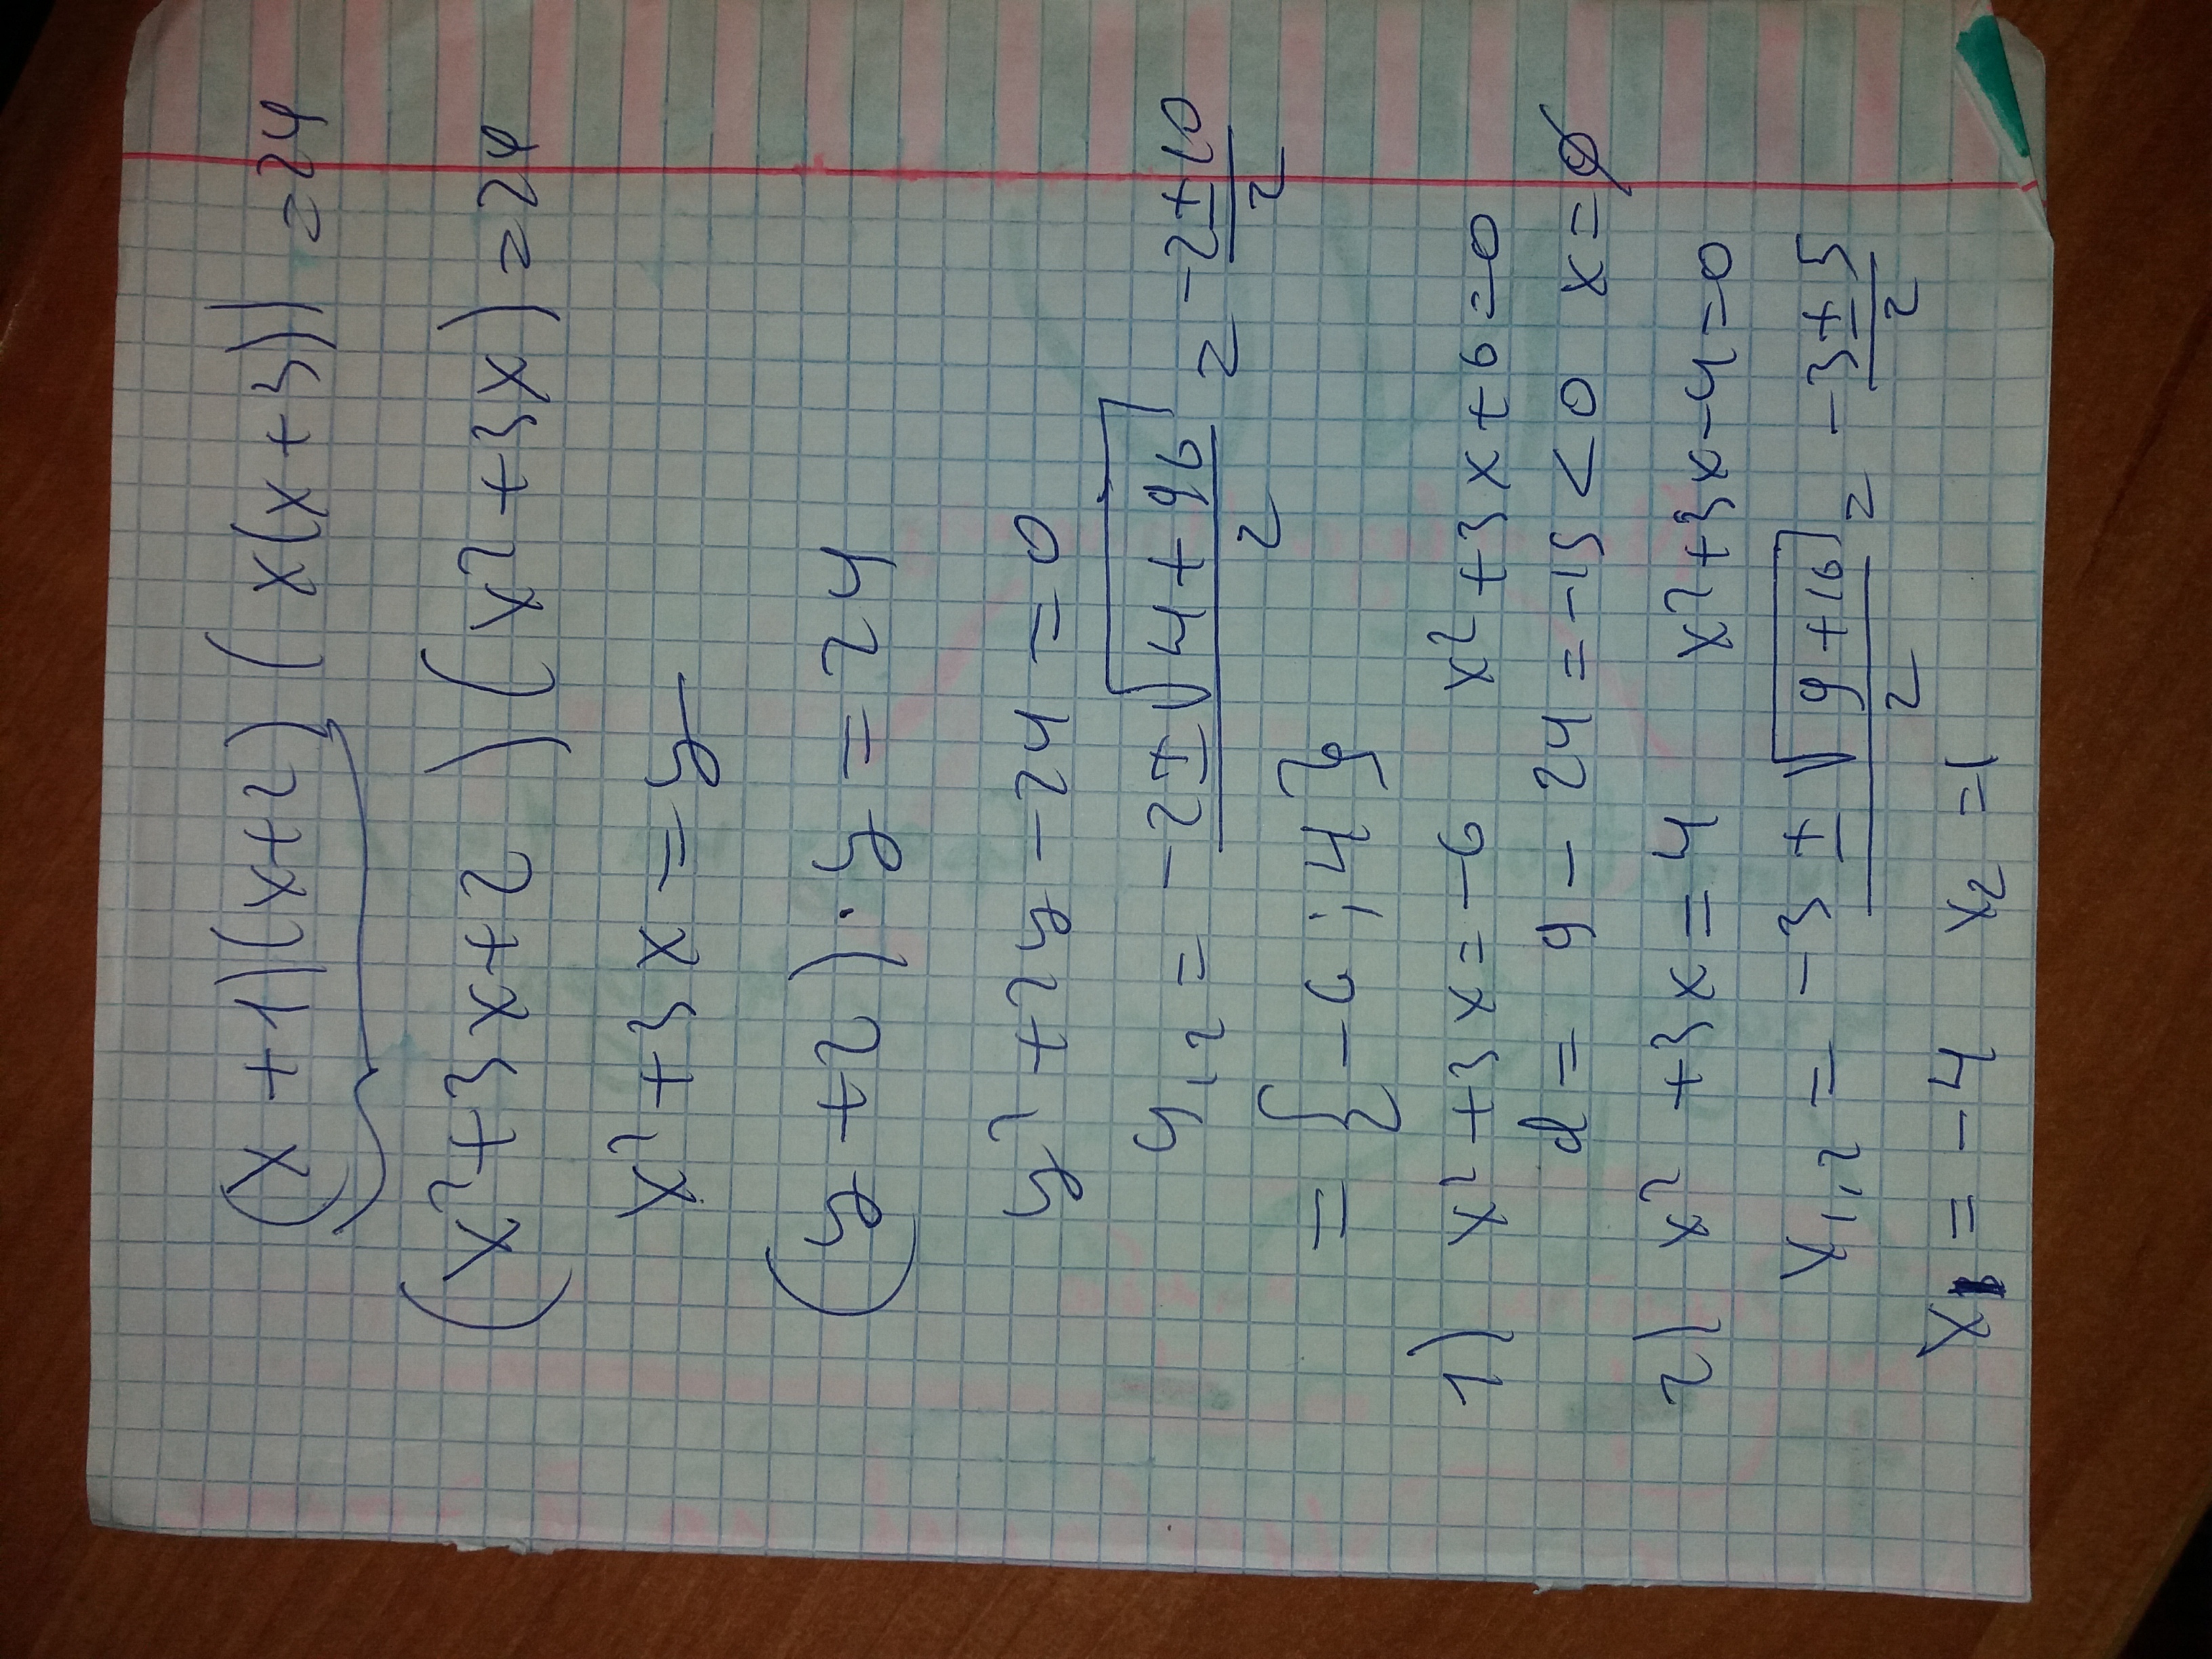 (x+1)(x+2)(x(x+3))=24
(x²+3x+2)(x²+3x)=24
x²+3x=y
(y+2)·y=24
y²+2y-24=0
y₁,₂ = (-2±√(4+96))/2 = (-2±10)/2
= {-6; 4}
1) x²+3x=-6 x²+3x+6=0
d=9-24=-15<0 x=∅
2) x²+3x=4 x²+3x-4=0
x₁,₂ = (-3±√(9+16))/2 = (-3±5)/2
x₁=-4 x₂=1